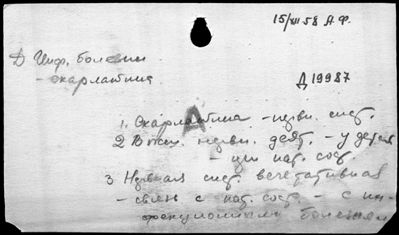 15/XII 58 А.Ф.
Д Инф. болезни
- скарлатина
Д 19987
А
1. Скарлатина - нервн. сист.
2 Высш. нервн. деят. - у детей
- при пат. сост.
3 Нервная сист. вегетативная
- связь с пат. сост. - с ин-
фекционными болезнями